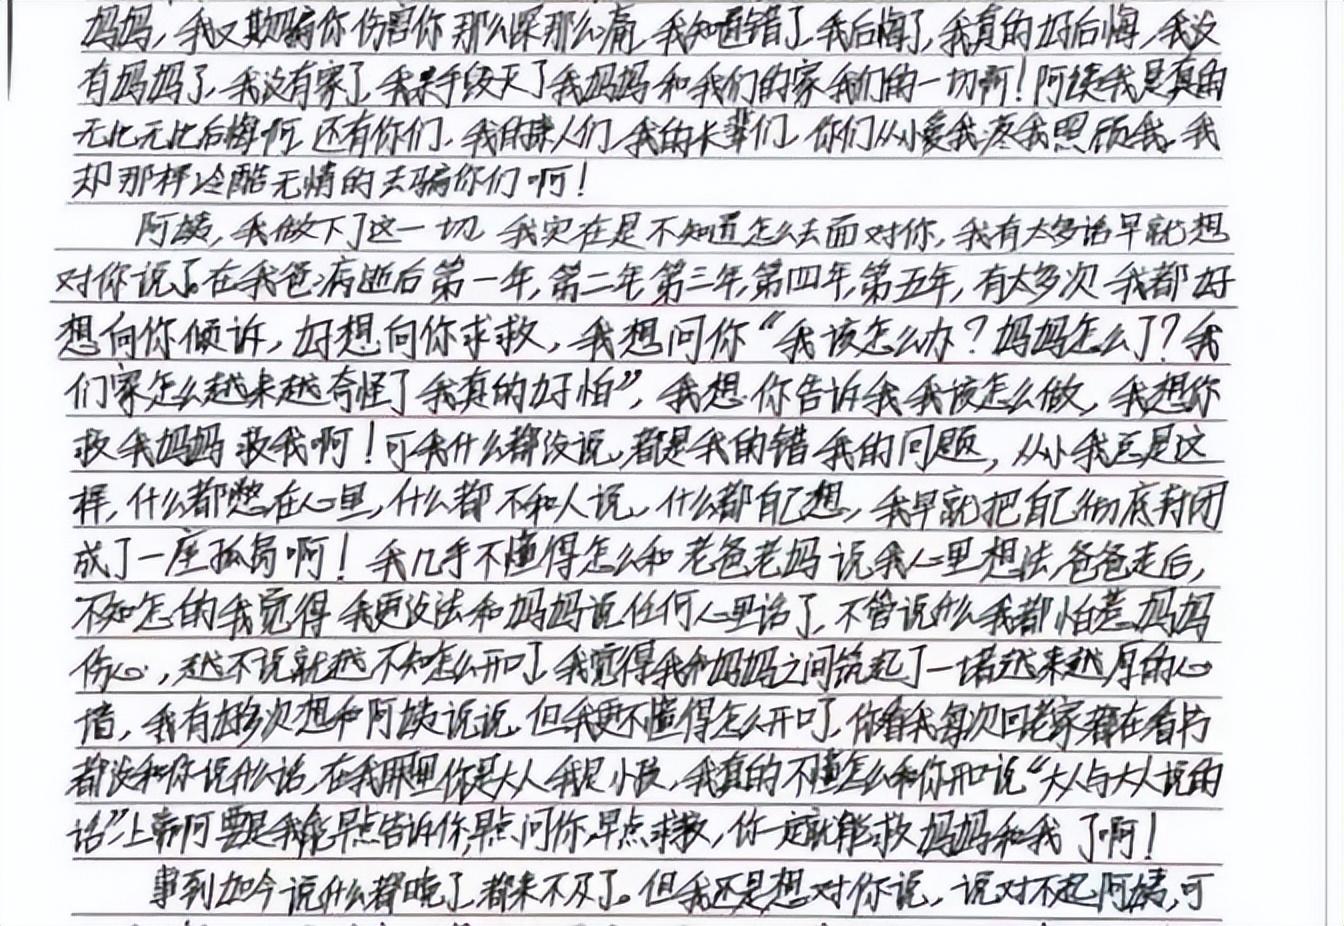 妈妈，我又欺骗你伤害你那么深那么痛，我知道错了，我后悔了，我真的好后悔，我没
有妈妈了，我没有家了，我亲手毁灭了我妈妈和我们的家我们的一切啊！阿姨我是真的
无比无比后悔啊，还有你们，我的亲人们，我的长辈们，你们从小爱我疼我照顾我，我
却那样冷酷无情的去骗你们啊！
阿姨，我做下了这一切，我实在是不知道怎么去面对你，我有太多话早就想
对你说了。在我爸病逝后第一年，第二年，第三年，第四年，第五年，有太多次我都好
想向你倾诉，好想向你求救，我想问你“我该怎么办？妈妈怎么了？我
们家怎么越来越奇怪了我真的好怕”，我想你告诉我我该怎么做，我想你
救我妈妈救我啊！可我什么都没说，都是我的错我的问题，从小我总是这
样，什么都憋在心里，什么都不和人说，什么都自己想，我早就把自己彻底封闭
成了一座孤岛啊！我几乎不懂得怎么和老爸老妈说我心里想法，爸爸走后，
不知怎的我觉得我更没法和妈妈说任何心里话了，不管说什么我都怕惹妈妈
伤心，越不说就越不知怎么开口了，我觉得我和妈妈之间筑起了一堵越来越厚的心
墙，我有好多次想和阿姨说说，但我更不懂得怎么开口了，你看我每次回老家都在看书
都没和你说什么话，在我那里你是大人我是小孩，我真的不懂怎么和你开口说“大人与大人说的
话”上帝啊要是我能早点告诉你，早点问你，早点求救，你一定就能救妈妈和我了啊！
事到如今说什么都晚了，都来不及了。但我还是想对你说，说对不起阿姨，可